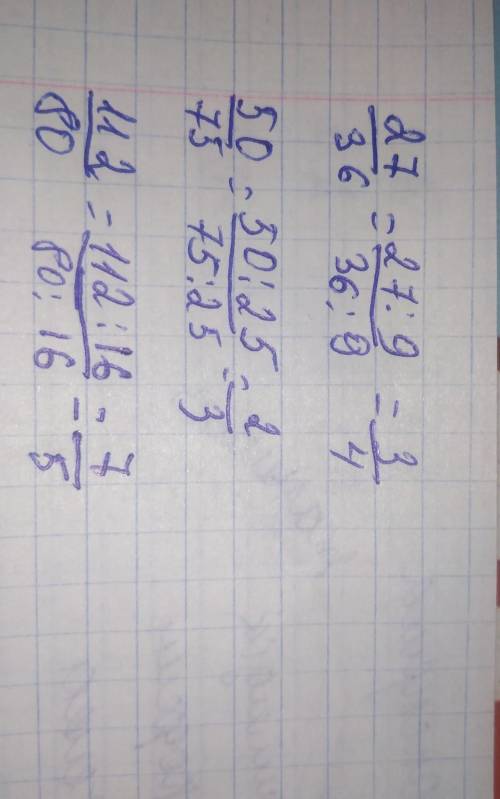 27/36 = 27:9/36:9 = 3/4
50/75 = 50:25/75:25 = 2/3
112/80 = 112:16/80:16 = 7/5